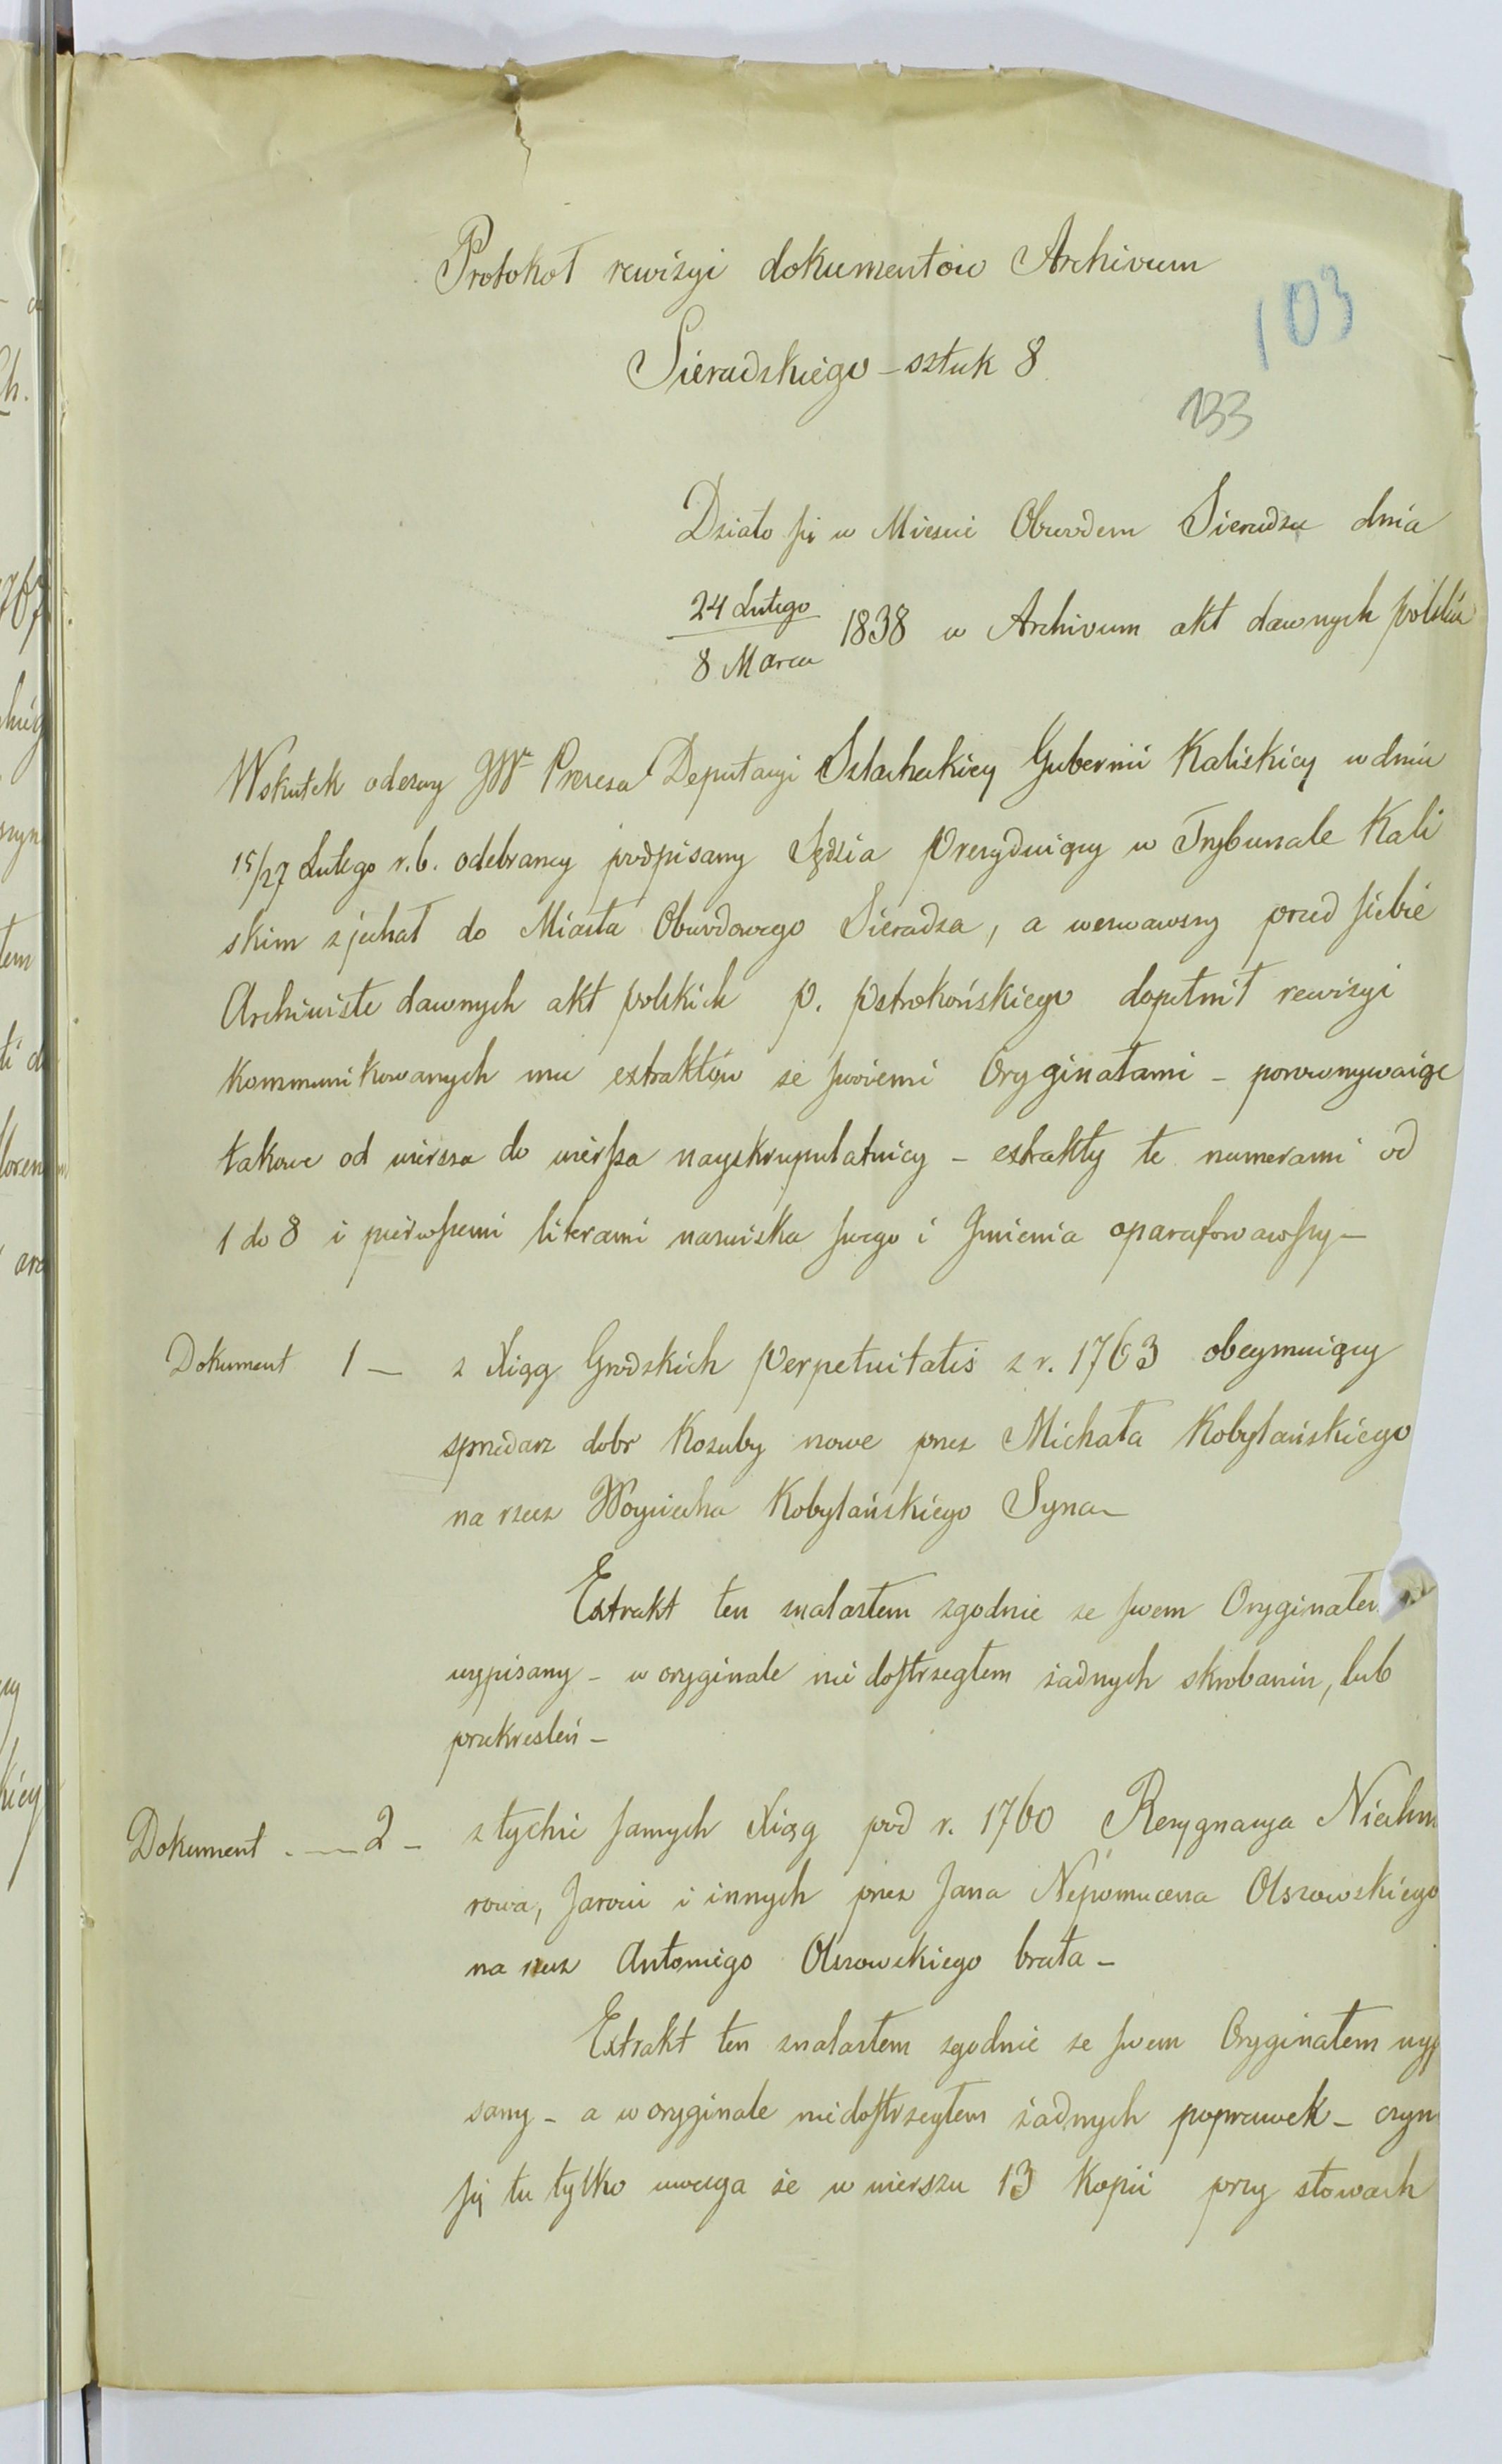 Protokoł rewizyi dokumentów Archivum
103
Sieradzkiego – sztuk 8
133
Działo się w Miescie Obwodem Sieradzu dnia
24 Lutego
8 Marca 1838 w Archivum akt dawnych polskich
Wskutek odezwy JW Prezesa Deputacyi Szlacheckiey Gubernii Kaliskiey w dniu
15/27 Lutego r.b. odebraney podpisany Sędzia Prezyduiący w Trybunale Kali
skim zjechał do Miasta Obwodowego Sieradza, a wezwawszy przed siebie
Archiwistę dawnych akt polskich P. Pstrokońskiego dopełnił rewizyi
kommunikowanych mu extraktów ze swoiemi Oryginałami – porównywaiąc
takowe od wiersza do wiersza nayskrupulatniey – extrakty te numerami od
1 do 8 i pierwszemi literami nazwiska swego i Jmienia oparafowawszy –
Dokument 1 – z Xiąg Grodzkich Perpetuitatis z r. 1763 obeymuiący
sprzedarz dobr Kozuby nowe przez Michała Kobylańskiego
na rzecz Woyciecha Kobylańskiego Syna –
Extrakt ten znalazłem zgodnie ze swem Oryginałem
wypisany – w oryginale nie dostrzegłem żadnych skrobanin, lub
przekresleń –
Dokument . — 2 – z tychże samych Xiąg pod r. 1760 Rezygnacya Niechm
rowa, Jarocic i innych przez Jana Nepomucena Olszowskiego
na rzecz Antoniego Olszowskiego brata –
Extrakt ten znalazłem zgodnie ze swem Oryginałem wyp
sany – a w oryginale niedostrzegłem żadnych poprawek – czyn
się tu tylko uwaga że w wierszu 13 Kopii przy słowach